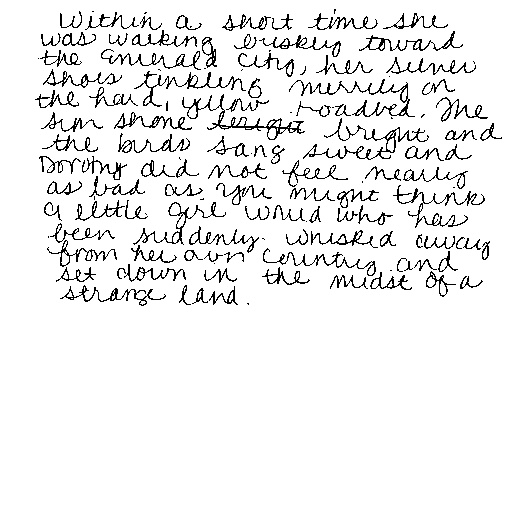 Within a short time she
was walking briskly toward
the Emerald City, her silver
shoes tinkling merrily on
the hard, yellow roadbed. The
sun shone bright bright and
the birds sang sweet and
Dorothy did not feel nearly
as bad as you might think
a little girl would who has
been suddenly whisked away
from her own country and
set down in the midst of a
strange land.